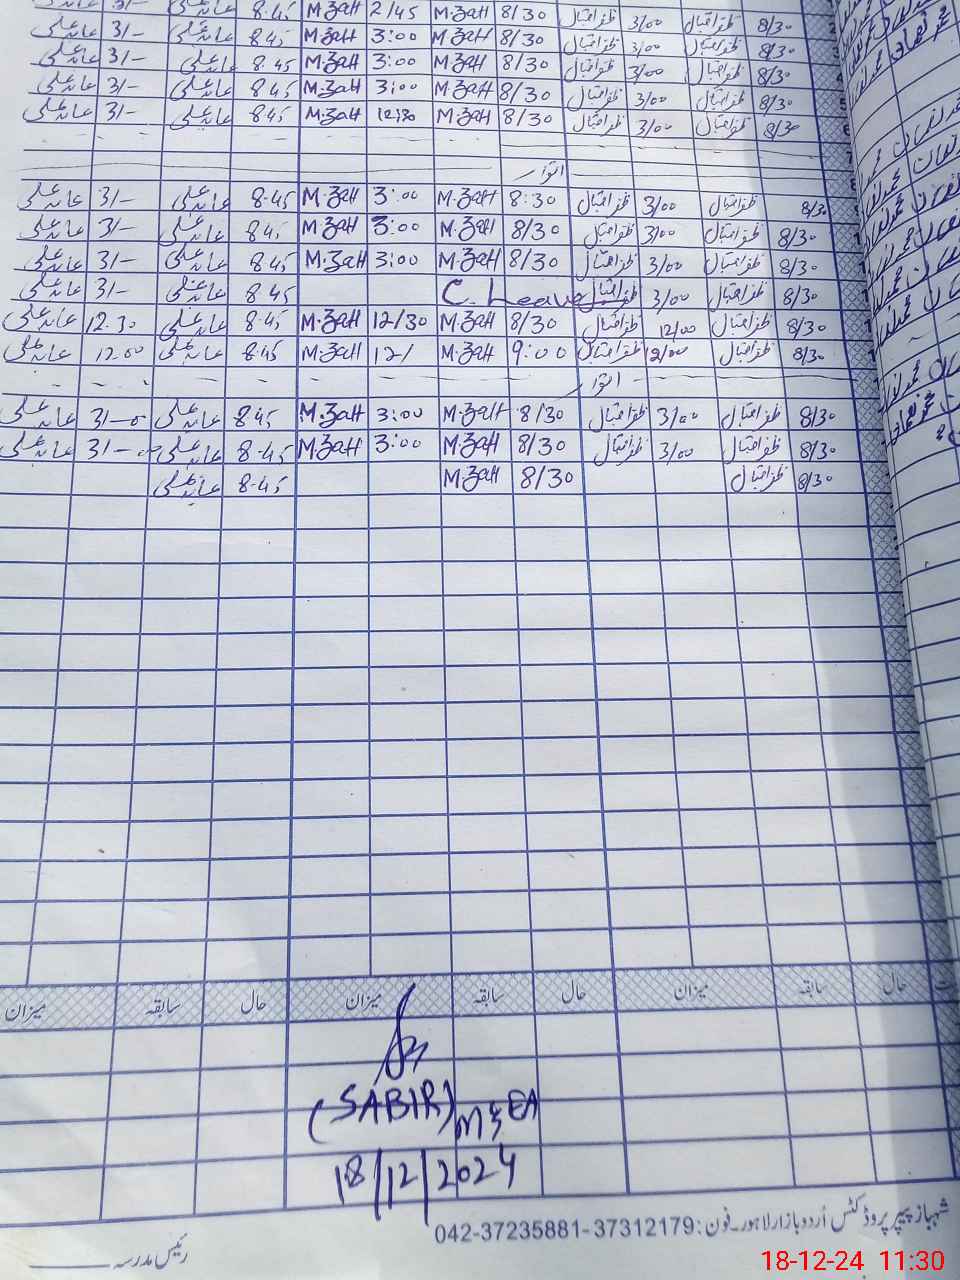 عابد علی 3/- عابد علی 8.45 M.ZaH 2/45 M.ZaH 8/30 ظفراقبال 3/00 ظفراقبال 8/30
عابد علی 3/- عابد علی 8.45 M.ZaH 3:00 M.ZaH 8/30 ظفراقبال 3/00 ظفراقبال 8/30
عابد علی 3/- عابد علی 8.45 M.ZaH 3:00 M.ZaH 8/30 ظفراقبال 3/00 ظفراقبال 8/30
عابد علی 3/- عابد علی 8.45 M.ZaH 3:00 M.ZaH 8/30 ظفراقبال 3/00 ظفراقبال 8/30
عابد علی 3/- عابد علی 845 M.ZaH 12:30 M.ZaH 8/30 ظفراقبال 3/00 ظفراقبال 8/30
اتوار
عابد علی 3/- عابد علی 8.45 M.ZaH 3:00 M.ZaH 8:30 ظفراقبال 3/00 ظفراقبال 8/30
عابد علی 3/- عابد علی 845 M.ZaH 3:00 M.ZaH 8/30 ظفراقبال 3/00 ظفراقبال 8/30
عابد علی 3/- عابد علی 8.45 M.ZaH 3:00 M.ZaH 8/30 ظفراقبال 3/00 ظفراقبال 8/30
عابد علی 3/- عابد علی 8.45 C. Leave ظفراقبال 3/00 ظفراقبال 8/30
عابد علی 12.30 عابد علی 8.45 M.ZaH 12/30 M.ZaH 8/30 ظفراقبال 12/00 ظفراقبال 8/30
عابد علی 12.00 عابد علی 8.45 M.ZaH 12/ M.ZaH 9:00 ظفراقبال 12/00 ظفراقبال 8/30
اتوار
عابد علی 3/- عابد علی 8.45 M.ZaH 3:00 M.ZaH 8/30 ظفراقبال 3/00 ظفراقبال 8/30
عابد علی 3/- عابد علی 8.45 M.ZaH 3:00 M.ZaH 8/30 ظفراقبال 3/00 ظفراقبال 8/30
عابد علی 8.45 M.ZaH 8/30 ظفراقبال 8/30
حال سابقہ میزان حال سابقہ میزان حال سابقہ میزان
(SABIR) M&EA
18/12/2024
شہباز پیپر پروڈکٹس اُردو بازار لاہور۔ فون: 37312179-37235881-042
رئیس مدرسہ
18-12-24 11:30